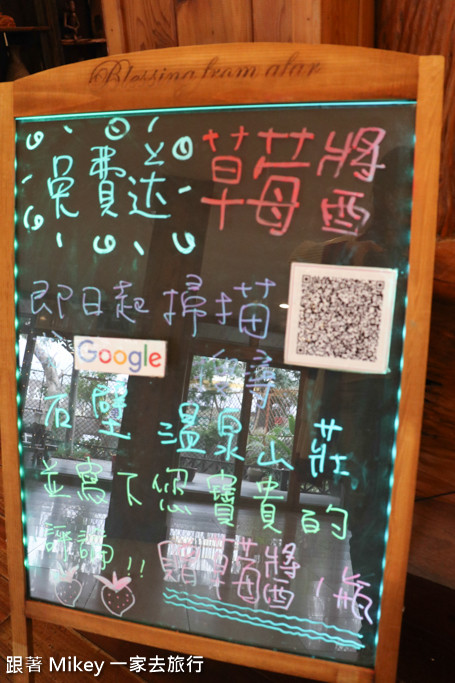 Blessing from afar
免費送 草莓醬
即日起掃描
Google 搜尋
石壁溫泉山莊
並寫下您寶貴的
評論!! 贈草莓醬1瓶
跟著 Mikey 一家去旅行